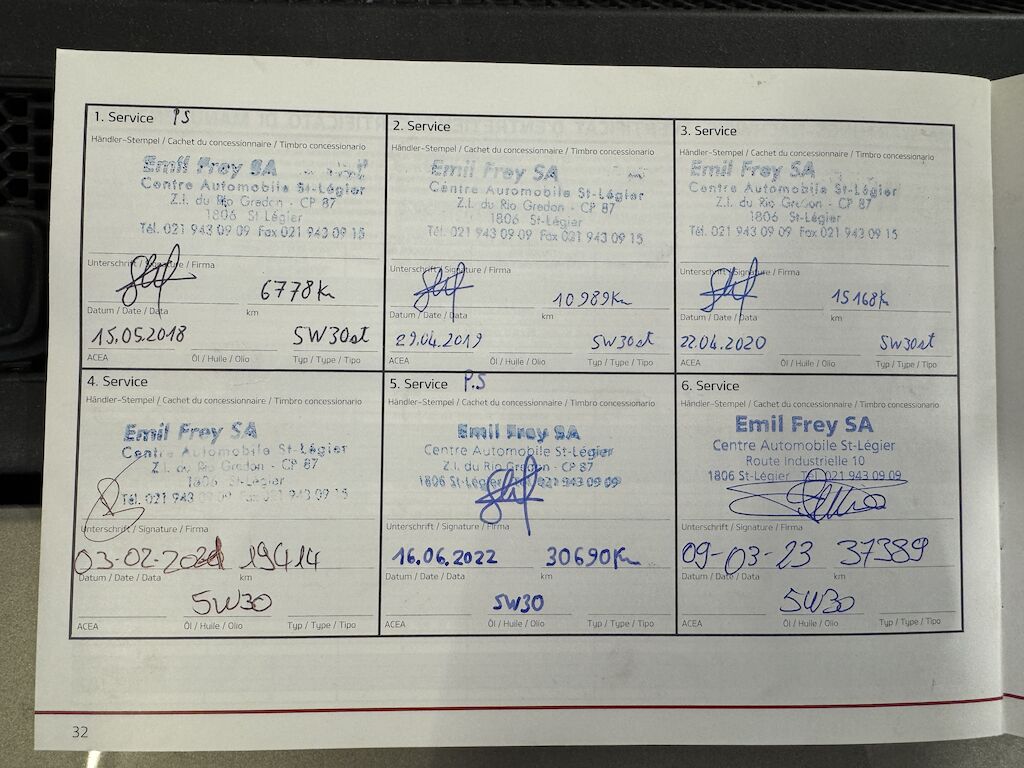 1. Service PS
Händler-Stempel / Cachet du concessionnaire / Timbro concessionario
Emil Frey SA
Centre Automobile St-Légier
Z.I. du Rio Gredon - CP 87
1806 St-Légier
Tél. 021 943 09 09 Fax 021 943 09 15
Unterschrift / Signature / Firma
6778 Km
Datum / Date / Data km
15.05.2018 5W30st
ACEA Öl / Huile / Olio Typ / Type / Tipo
2. Service
Händler-Stempel / Cachet du concessionnaire / Timbro concessionario
Emil Frey SA
Centre Automobile St-Légier
Z.I. du Rio Gredon - CP 87
1806 St-Légier
Tél. 021 943 09 09 Fax 021 943 09 15
Unterschrift / Signature / Firma
10989 Km
Datum / Date / Data km
29.04.2019 5W30st
ACEA Öl / Huile / Olio Typ / Type / Tipo
3. Service
Händler-Stempel / Cachet du concessionnaire / Timbro concessionario
Emil Frey SA
Centre Automobile St-Légier
Z.I. du Rio Gredon - CP 87
1806 St-Légier
Tél. 021 943 09 09 Fax 021 943 09 15
Unterschrift / Signature / Firma
15168 Km
Datum / Date / Data km
22.04.2020 5W30st
ACEA Öl / Huile / Olio Typ / Type / Tipo
4. Service
Händler-Stempel / Cachet du concessionnaire / Timbro concessionario
Emil Frey SA
Centre Automobile St-Légier
Z.I. du Rio Gredon - CP 87
1806 St-Légier
Tél. 021 943 09 09 Fax 021 943 09 15
Unterschrift / Signature / Firma
03-02-2021 19414
Datum / Date / Data km
5W30
ACEA Öl / Huile / Olio Typ / Type / Tipo
5. Service P.S
Händler-Stempel / Cachet du concessionnaire / Timbro concessionario
Emil Frey SA
Centre Automobile St-Légier
Z.I. du Rio Gredon - CP 87
1806 St-Légier Tél. 021 943 09 09
Unterschrift / Signature / Firma
16.06.2022 30690 Km
Datum / Date / Data km
5W30
ACEA Öl / Huile / Olio Typ / Type / Tipo
6. Service
Händler-Stempel / Cachet du concessionnaire / Timbro concessionario
Emil Frey SA
Centre Automobile St-Légier
Route Industrielle 10
1806 St-Légier Tél. 021 943 09 09
Unterschrift / Signature / Firma
09-03-23 37389
Datum / Date / Data km
5W30
ACEA Öl / Huile / Olio Typ / Type / Tipo
32